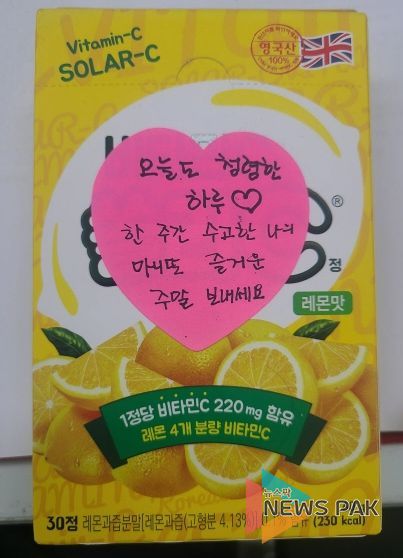 Vitamin-C
SOLAR-C
영국산
100%
오늘도 청렴한
하루♡
한 주간 수고한 나의
마니또 즐거운
주말 보내세요
®
정
레몬맛
1정당 비타민C 220mg 함유
레몬 4개 분량 비타민C
뉴스팍
NEWS PAK
30정 레몬과즙분말[레몬과즙(고형분 4.13%)] 0.1% 함유 (230 kcal)